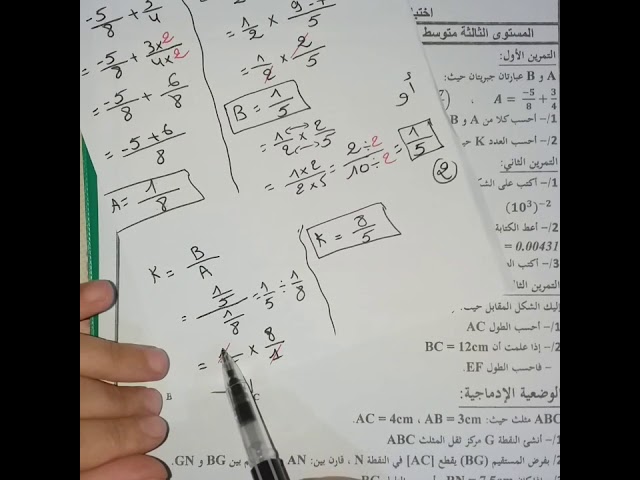 -5/8 + 3/4
= -5/8 + 3×2/4×2
= -5/8 + 6/8
= -5+6/8
A = 1/8
= 1/2 ×
= 1/2 × 2/5
B = 1/5
أو
= 1/2 × 2/5
= 1×2/2×5 = 2÷2/10÷2 = 1/5
2
K = B/A
= 1/5 / 1/8 = 1/5 ÷ 1/8
= × 8/1
K = 8/5
المستوى الثالثة متوسط
التمرين الأول:
A و B عبارتان جبريتان حيث:
A = -5/8 + 3/4 ،
1/- أحسب كلا من A و B
2/- أحسب العدد K
التمرين الثاني:
1/- أكتب على
(10³)⁻²
2/- أعط الكتابة
= 0.00431
3/- أكتب
التمرين
إليك الشكل المقابل حيث
1/- أحسب الطول AC
2/- إذا علمت أن BC = 12cm
- فاحسب الطول EF.
الوضعية الإدماجية:
ABC مثلث حيث: AB = 3cm ، AC = 4cm
1/- أنشئ النقطة G مركز ثقل المثلث ABC
2/- بفرض المستقيم (BG) يقطع [AC] في النقطة N ، قارن بين: AN
بين BG و GN.
BN = 7.5cm
B
C